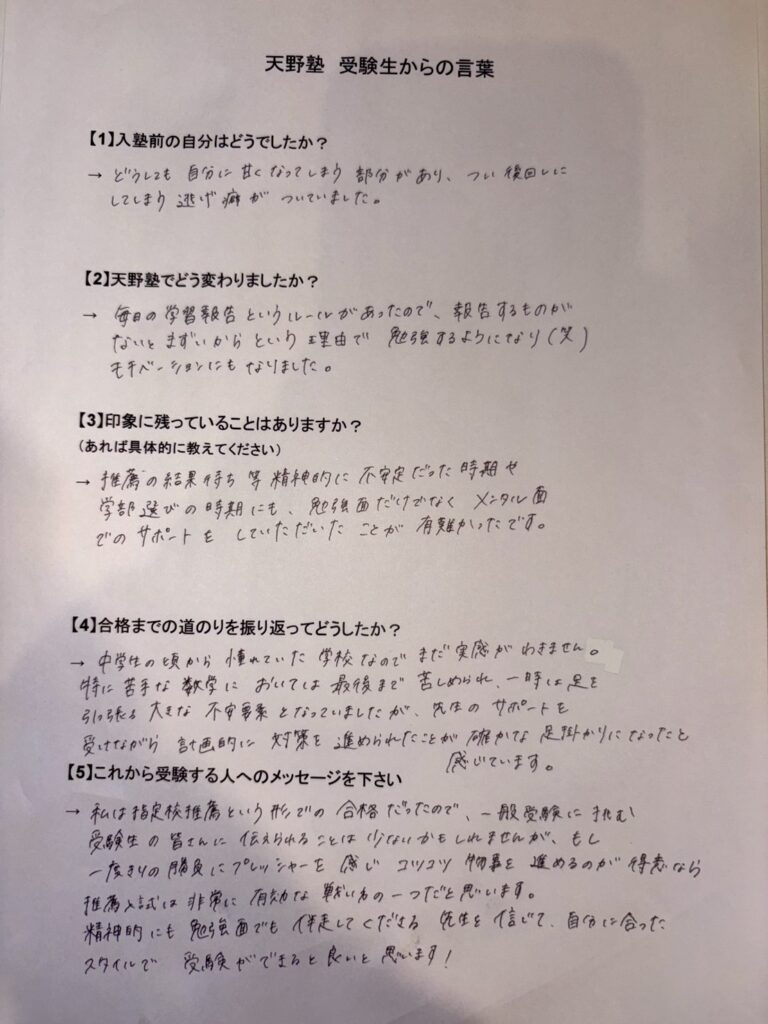 天野塾 受験生からの言葉
【1】入塾前の自分はどうでしたか？
→ どうしても 自分に 甘くなってしまう 部分があり、つい 後回しに
してしまう 逃げ癖が ついていました。
【2】天野塾でどう変わりましたか？
→ 毎日の学習報告というルールがあったので、報告するものが
ないと まずいから という 理由で 勉強するようになり(笑)
モチベーションにも なりました。
【3】印象に残っていることはありますか？
（あれば具体的に教えてください）
→ 推薦の結果待ち 等 精神的に 不安定だった 時期や
学部選びの時期にも、勉強面だけでなく メンタル面
でのサポートを していただいた ことが 有難かったです。
【4】合格までの道のりを振り返ってどうしたか？
→ 中学生の頃から 憧れていた 学校なので まだ 実感がわきません。
特に苦手な 数学に おいては 最後まで 苦しめられ、一時は足を
引っ張る 大きな 不安要素 となっていましたが、先生の サポートを
受けながら 計画的に 対策を 進められたことが 確かな 足掛かりになったと
感じています。
【5】これから受験する人へのメッセージを下さい
→ 私は指定校推薦という形での 合格だったので、一般受験に挑む
受験生の皆さんに 伝えられることは 少ないかもしれませんが、もし
一度きりの 勝負にプレッシャーを 感じ コツコツ 物事を 進めるのが 得意なら
推薦入試は 非常に 有効な 戦い方の一つだと思います。
精神的にも 勉強面でも 伴走してくださる 先生を 信じて、自分に合った
スタイルで 受験ができると良いと 思います！